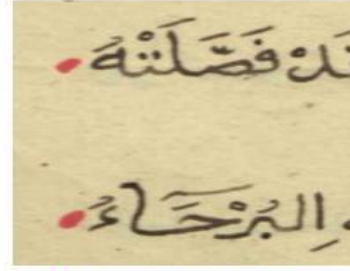 قَدْ فَصَّلَتْهُ
البُرَحَاءُ